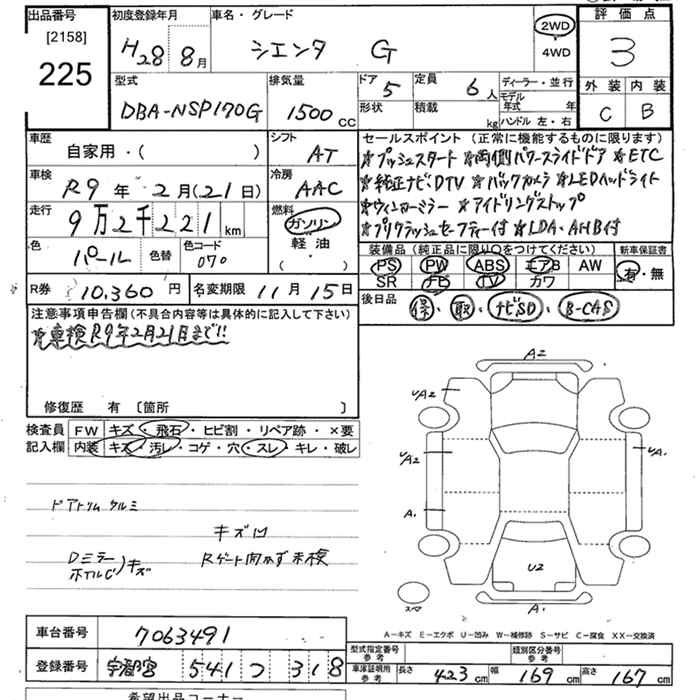 出品番号 初度登録年月 車名・グレード 評価点
[2158]
225
H28 8月 シエンタ G 2WD 4WD 3
型式 排気量 ドア 5 定員 6人 ディーラー・並行 外装 内装
DBA-NSP170G 1500cc 形状 積載 kg モデル年式 年 C B
ハンドル 左・右
車歴 シフト セールスポイント (正常に機能するものに限ります)
自家用・( ) AT ☆プッシュスタート ☆両側パワースライドドア ☆ETC
車検 冷房 ☆純正ナビ、DTV ☆バックカメラ ☆LEDヘッドライト
R9年 2月(21日) AAC ☆ウィンカーミラー ☆アイドリングストップ
走行 燃料 ☆プリクラッシュセーフティー付 ☆LDA・AHB付
9万2千221km ガソリン
軽油
( )
色 パール 色替 色コード 070
装備品 (純正品に限り○をつけてください) 新車保証書
PS PW ABS エアB AW 有・無
SR ナビ TV カワ
R券 10,360円 名変期限 11月15日
後日品 保・取・ナビSD・B-CAS
注意事項申告欄(不具合内容等は具体的に記入して下さい)
☆車検R9年2月21日まで!!
修復歴 有 〔箇所 〕
検査員 FW キズ・飛石・ヒビ割・リペア跡・×要
記入欄 内装 キズ・汚レ・コゲ・穴・スレ・キレ・破レ
ドアトリム ケルミ
キズ凹
Dミラー ホイルC)キズ Rゲート開かず未検
A2
UA2
UA2
A1
UA1
U2
A1
スマ
A-キズ E-エクボ U-凹み W-補修跡 S-サビ C-腐食 XX-交換済
車台番号 7063491
登録番号 宇都宮 541 つ 318
型式指定番号 参考 類別区分番号 参考
車庫証明用 参考 長さ 423cm 幅 169cm 高さ 167cm
希望出品コーナー